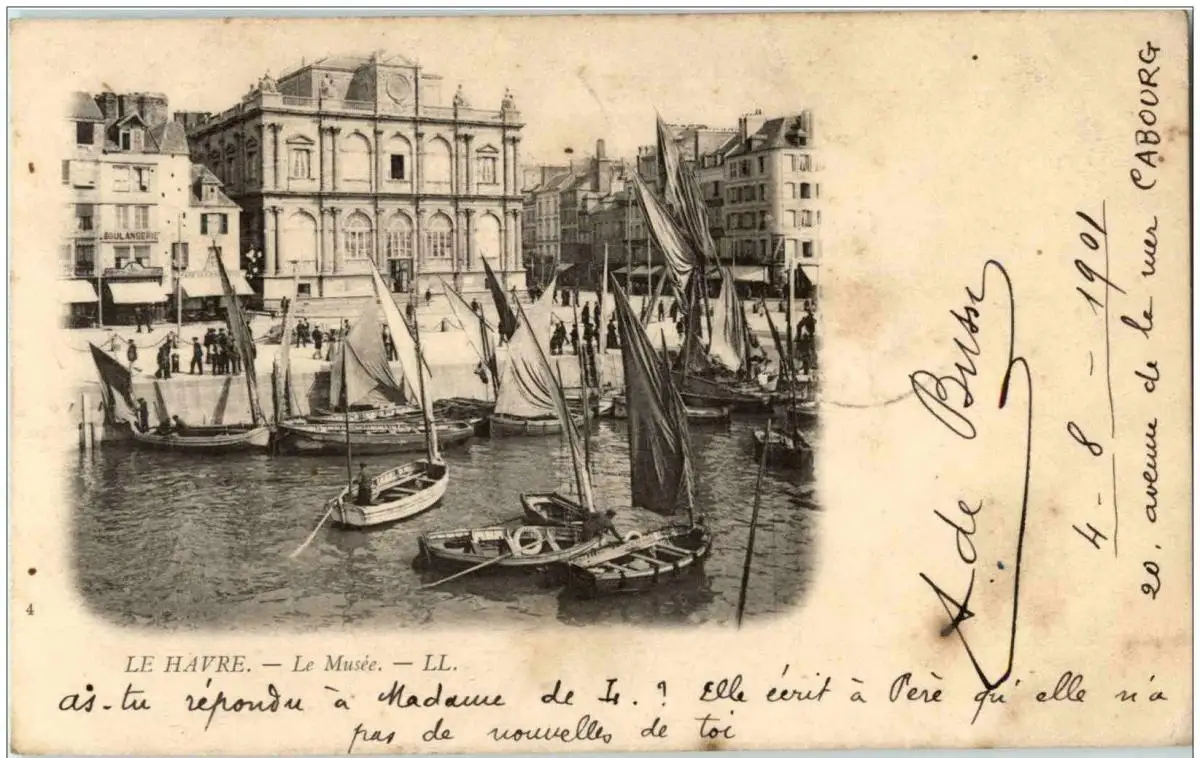 BOULANGERIE
4
LE HAVRE. — Le Musée. — LL.
as-tu répondu à Madame de L. ? Elle écrit à Père qu'elle n'a
pas de nouvelles de toi
A de Bussc
4 - 8 - 1901
20. avenue de la mer CABOURG